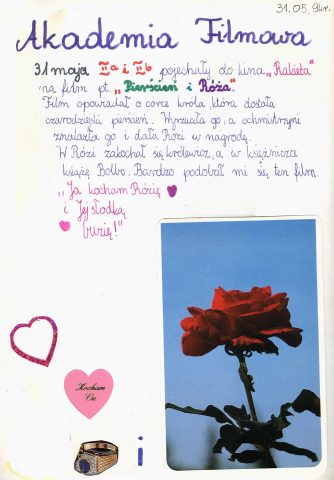 31.05.94r.
Akademia Filmowa
31 maja IIa i IIb pojechały do kina „Rakieta”
na film pt. „Pierścień i Róża”.
Film opowiadał o córce króla, która dostała
czarodziejski pierścień. Wyrzuciła go, a ochmistrzyni
znalazła go i dała Rózi w nagrodę.
W Rózi zakochał się królewicz, a w księżniczce
książę Bolbo. Bardzo podobał mi się ten film.
„Ja kocham Rózię
i Jej słodką
buzię!”
Kocham
Cię
i